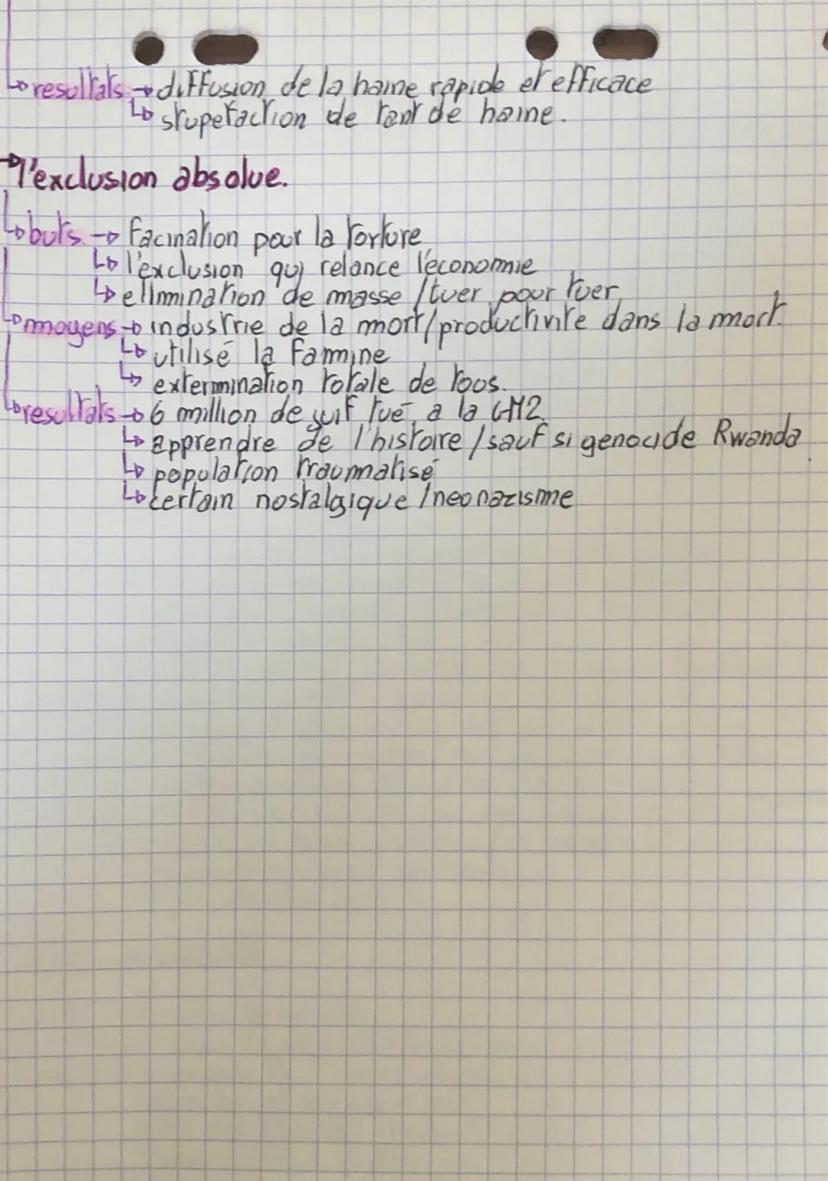 ↳resultats → diffusion de la haine rapide et efficace
↳ stupefaction de tant de haine.
→l'exclusion absolue.
↳buts → facination pour la torture
↳ l'exclusion qui relance l'economie
↳ elimnination de masse / tuer pour tuer
↳moyens → industrie de la mort/productivite dans la mort.
↳ utilisé la famine
↳ extermination totale de tous.
↳resultats → 6 million de juif tué a la GM2
↳ apprendre de l'histoire / sauf si genocide Rwanda.
↳ population traumatisé
↳ certain nostalgique / neonazisme